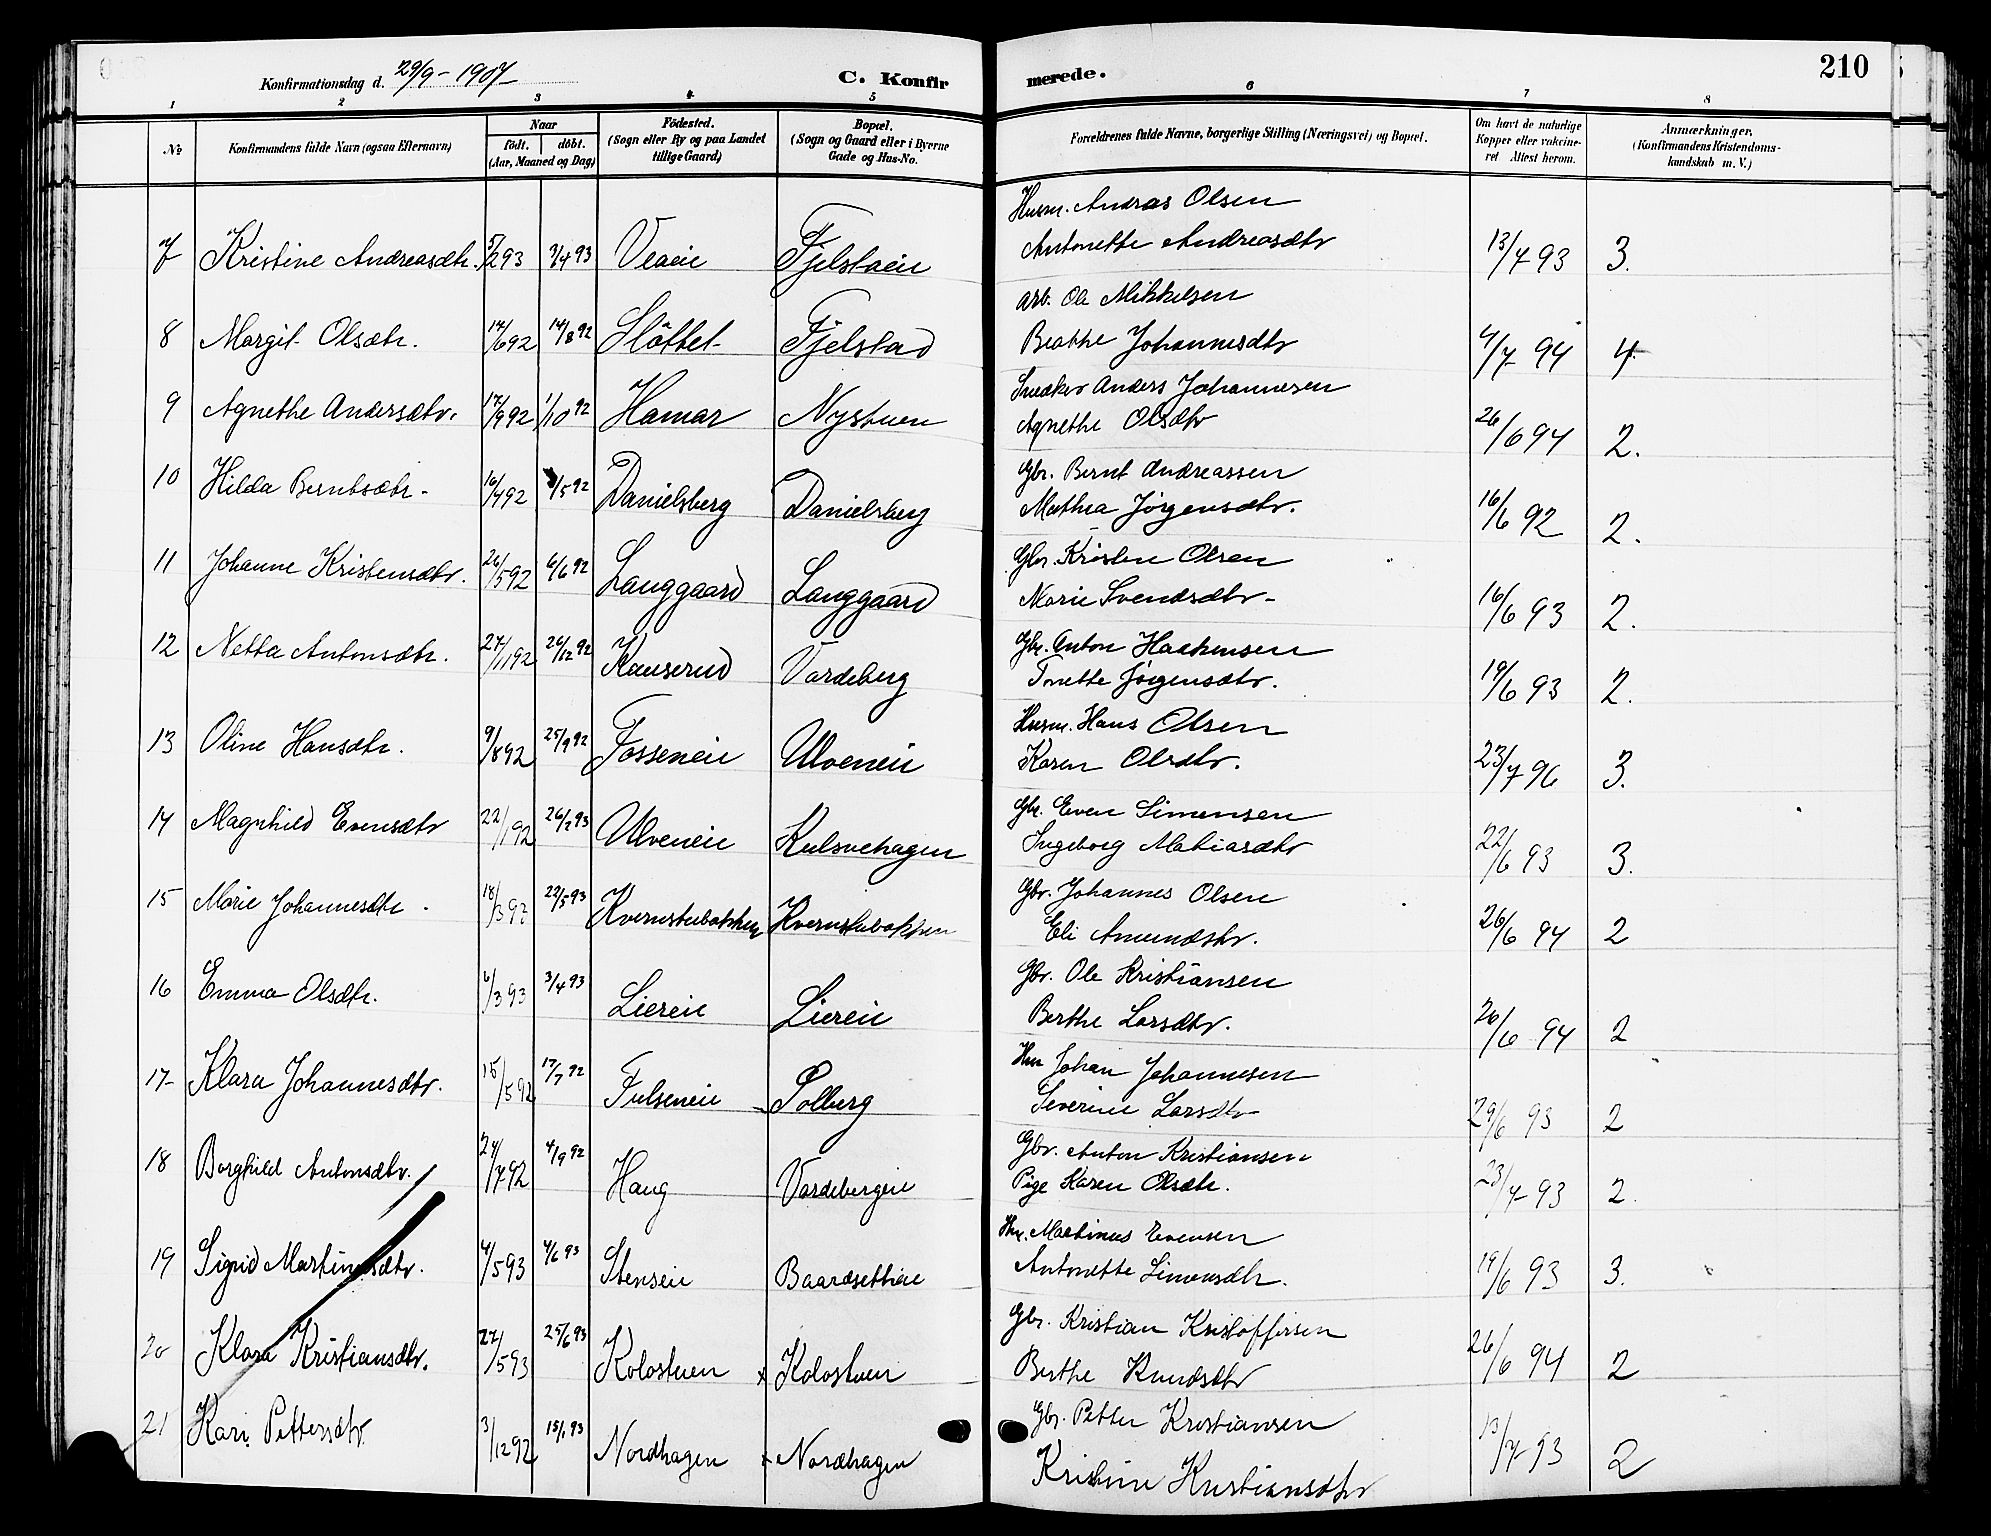 Konfirmationsdag d. 29/9 - 1907
C. Konfir merede. 210
1 2 3 4 5 6 7 8
No
Konfirmandens fulde Navn (ogsaa Efternavn)
Naar født. døbt. (Aar, Maaned og Dag)
Fødested. (Sogn eller By og paa Landet tillige Gaard)
Bopæl. (Sogn og Gaard eller i Byerne Gade og Hus-No.
Forældrenes fulde Navne, borgerlige Stilling (Næringsvei) og Bopæl.
Om havt de naturlige Kopper eller vaccineret Attest herom.
Anmærkninger. (Konfirmandens Kristendomskundskab m. V.)
Husm. Andras Olsen
7 Kristine Andreasdtr. 5/2 93 3/4 93 Veaeie Fjelstaeie Antonette Andreasdtr 13/7 93 3.
Arb. Ole Mikkelsen
8 Margit Olsdtr. 14/6 92 14/8 92 Slöttet Fjelstad Beathe Johannesdtr 4/7 94 4
Snedker Anders Johannesen
9 Agnethe Andersdtr. 17/9 92 1/10 92 Hamar Nystuen Agnethe Olsdtr 26/6 94 2.
Gbr. Bernt Andreassen
10 Hilda Berntsdtr. 16/4 92 /5 92 Danielsberg Danielsberg Mathea Jørgensdtr. 16/6 92 2.
Gbr. Kristen Olsen
11 Johanne Kristensdtr. 26/5 92 6/6 92 Langgaard Langgaard Marie Svendsdtr 16/6 93 2.
Gbr. Anton Haakensen
12 Netta Antonsdtr. 27/11 92 26/12 92 Kauserud Vardeberg Tonette Jørgensdtr. 19/6 93 2.
Husm. Hans Olsen
13 Oline Hansdtr. 9/8 92 25/9 92 Fosseneie Ulveneie Karen Olsdtr. 23/7 96 3.
Gbr. Even Simensen
14 Magnhild Evensdtr 22/1 92 26/2 93 Ulveneie Kulsvehagen Ingeborg Matiasdtr 22/6 93 3.
Gbr. Johannes Olsen
15 Marie Johannesdtr. 18/3 92 22/5 93 Kvernstubakken Kvernstubakken Eli Amundsdtr. 26/6 94 2
Gbr. Ole Kristiansen
16 Emma Olsdtr. 6/3 93 3/4 93 Liereie Liereie Berthe Larsdtr. 26/6 94 2
Hm Johan Johannesen
17 Klara Johannesdtr. 15/5 92 17/7 92 Fulseneie Solberg Severine Larsdtr 29/6 93 2
Gbr. Anton Kristiansen
18 Borghild Antonsdtr. 24/7 92 4/9 92 Haug Vardebergeie Pige Karen Olsdtr. 23/7 93 2.
Hm. Martinus Evensen
19 Sigrid Martinusdtr. 4/5 93 4/6 93 Stenseie Baardsetheie Antonette Simensdtr. 19/6 93 3.
Gbr. Kristian Kristoffersen
20 Klara Kristiansdtr. 27/5 93 25/6 93 Kolostuen x Kolostuen Berthe Knudsdtr 26/6 94 2
Gbr. Petter Kristiansen
21 Kari Pettersdtr 3/12 92 15/1 93 Nordhagen x Nordhagen Kristine Kristiansdtr 13/7 93 2